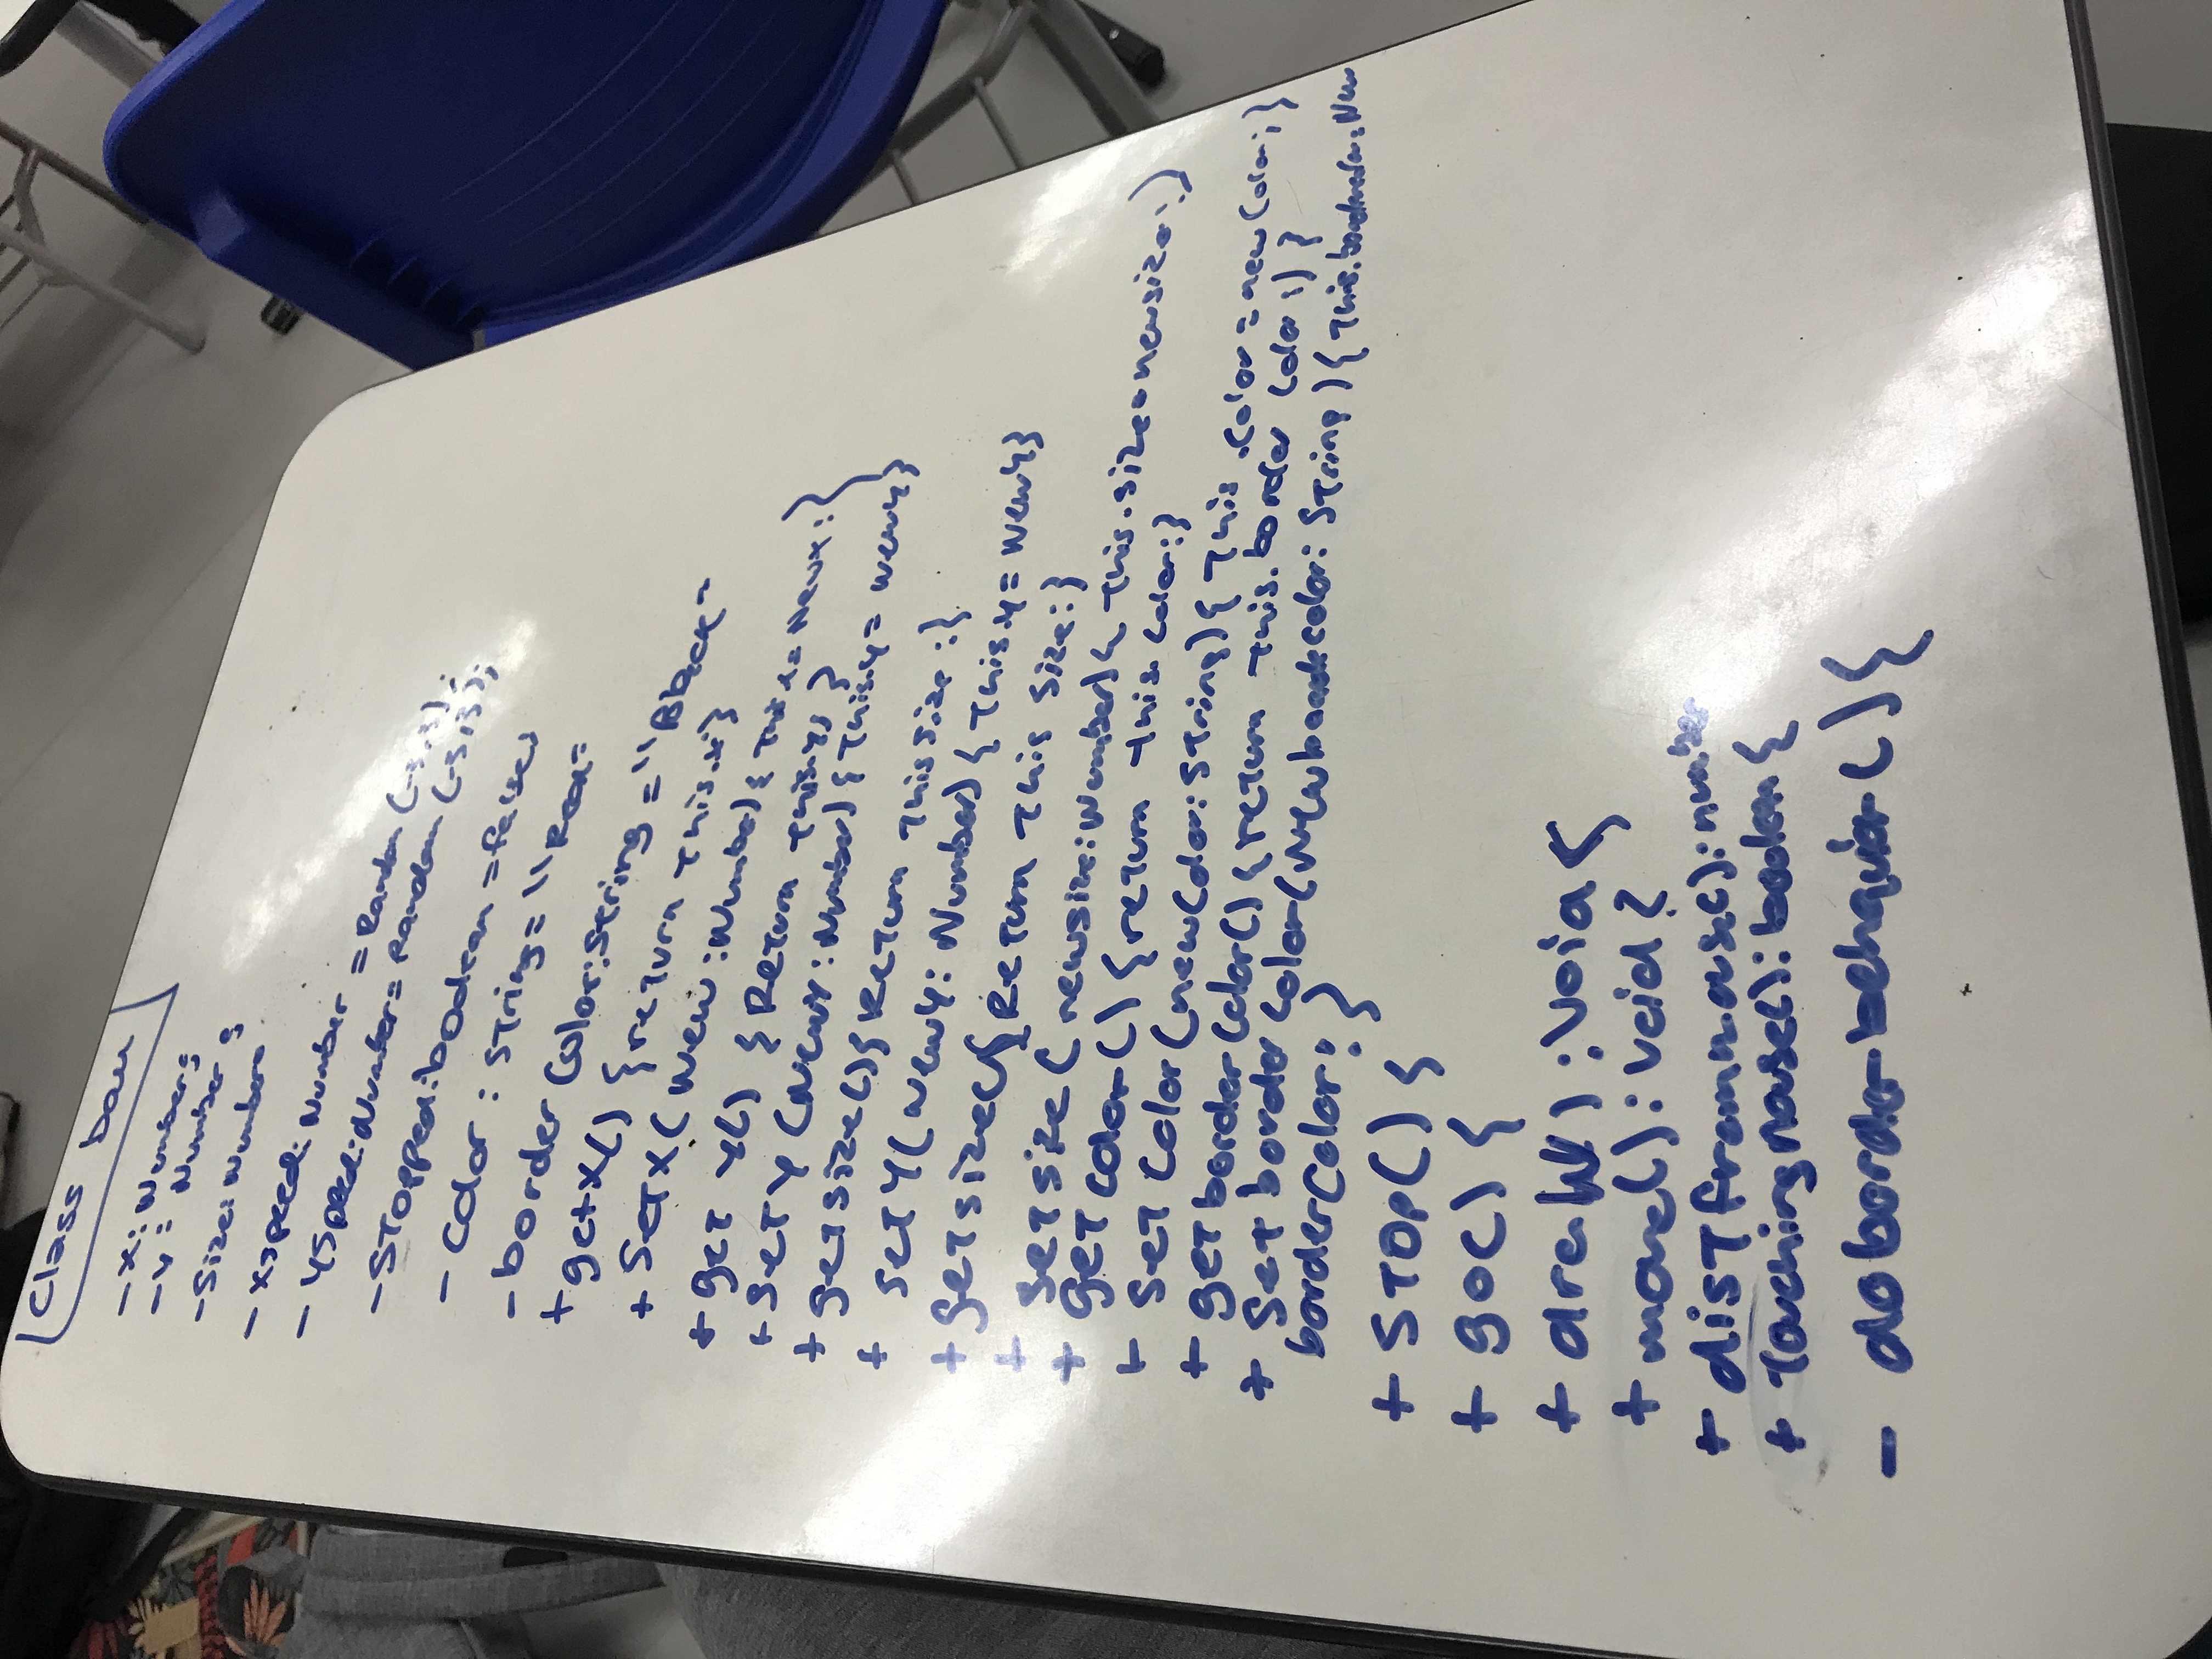 Class ball
- x: Number;
- y: Number;
- Size: Number
- xspeed: Number = Random (-3,3);
- yspeed: Number = Random (-3,3);
- Stopped: boolean = false;
- Color : String = "Red"
- border Color: String = "Black"
+ getX() {return this.x}
+ SetX( New : Number) { This x = Newx; }
+ get y() {Return this.y; }
+ SET Y (Newy: Number) { This.y = Newy}
+ getsize() {Return this size ;}
+ SetY( Newy: Number) { This.y = Newy}
+ getsize() {Return This size ;}
+ Setsize ( newsize: Number) { This.size = newsize ; }
+ get Color() {return this. Color ;}
+ Set Color (newColor: String) { This .Color = new Color ; }
+ get border Color() {return this. border Color ;) }
+ Set border Color( : String ) { This. : New
borderColor ; }
+ STOP() {
+ go() {
+ draw() : Void {
+ move() : Void {
+ distfrommouse() : number
+ Touchingmouse() : boolean {
- doborderbehavior () {